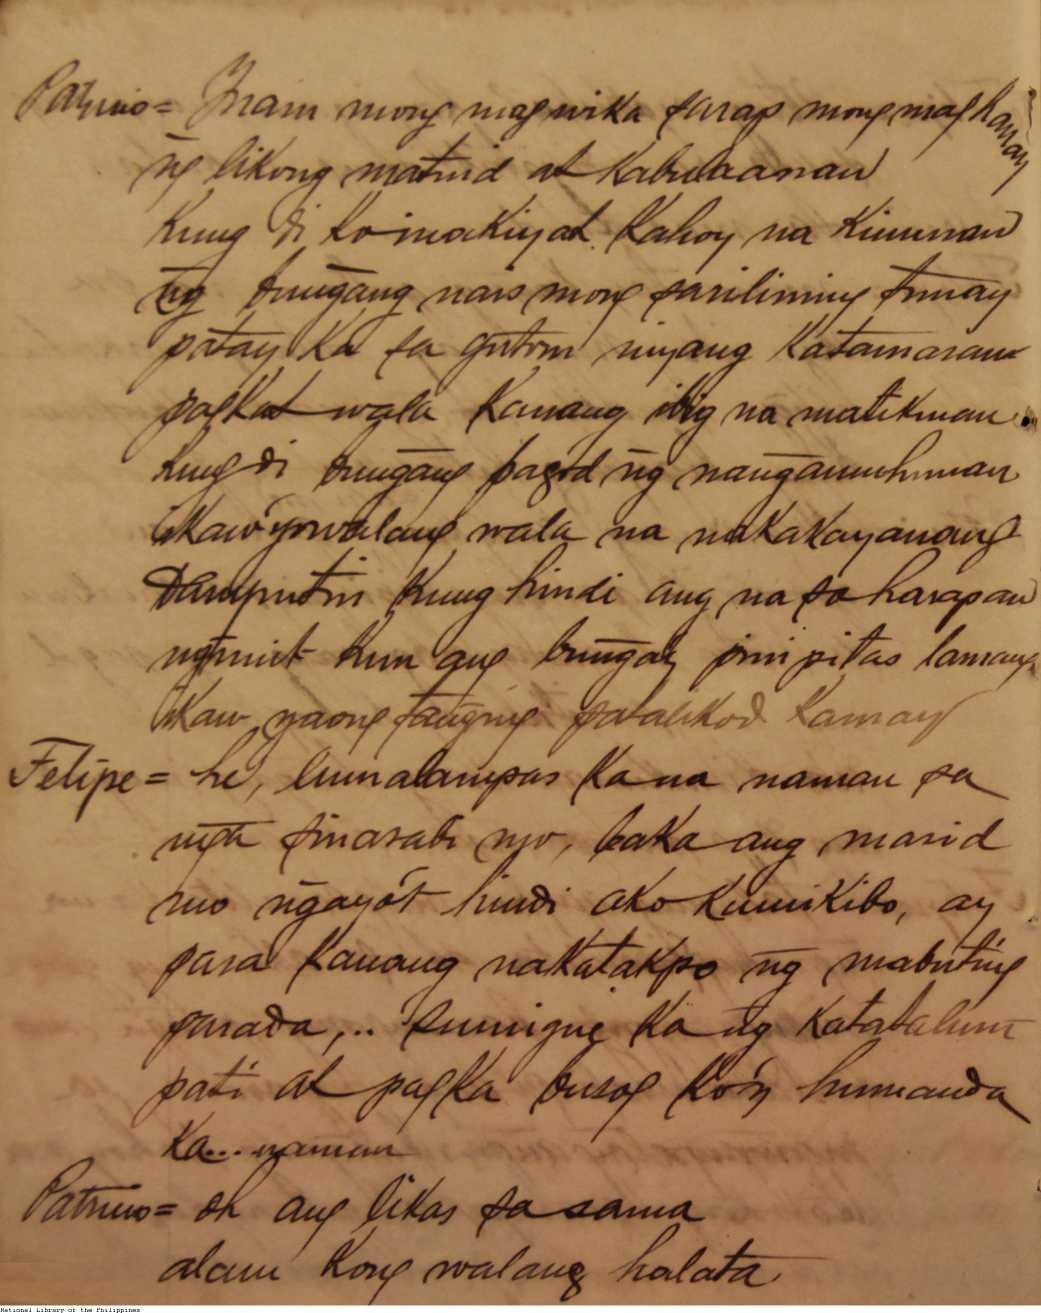 Patricio = Inam mong magwika sarap mong maghanay
ng likong matuid at kabulaanan
kung di ko inakiyat kahoy na kinunan
ng bungang nais mong sarilining tunay
patay ka sa gutom niyang katamaran
pagkat wala kanang ibig na matikman
kung di bungang pagod ng
ikaw wala na nakakayanang
Damputin kung hindi ang na sa harapan
ngunit kun ang bungay pinipitas lamang
ikaw yaong tanging patalikod kamay
Felipe = he, lumalampas ka na naman sa
mga sinasabi mo, baka ang masid
mo ngayo't hindi ako kumikibo, ay
para kanang nakatakpo ng mabuting
parada,.. sumigne ka ng
pati at pagka busog ko'y humanda
ka... naman
Patricio = oh ang likas sa sama
alam kong walang halata
National Library of the Philippines